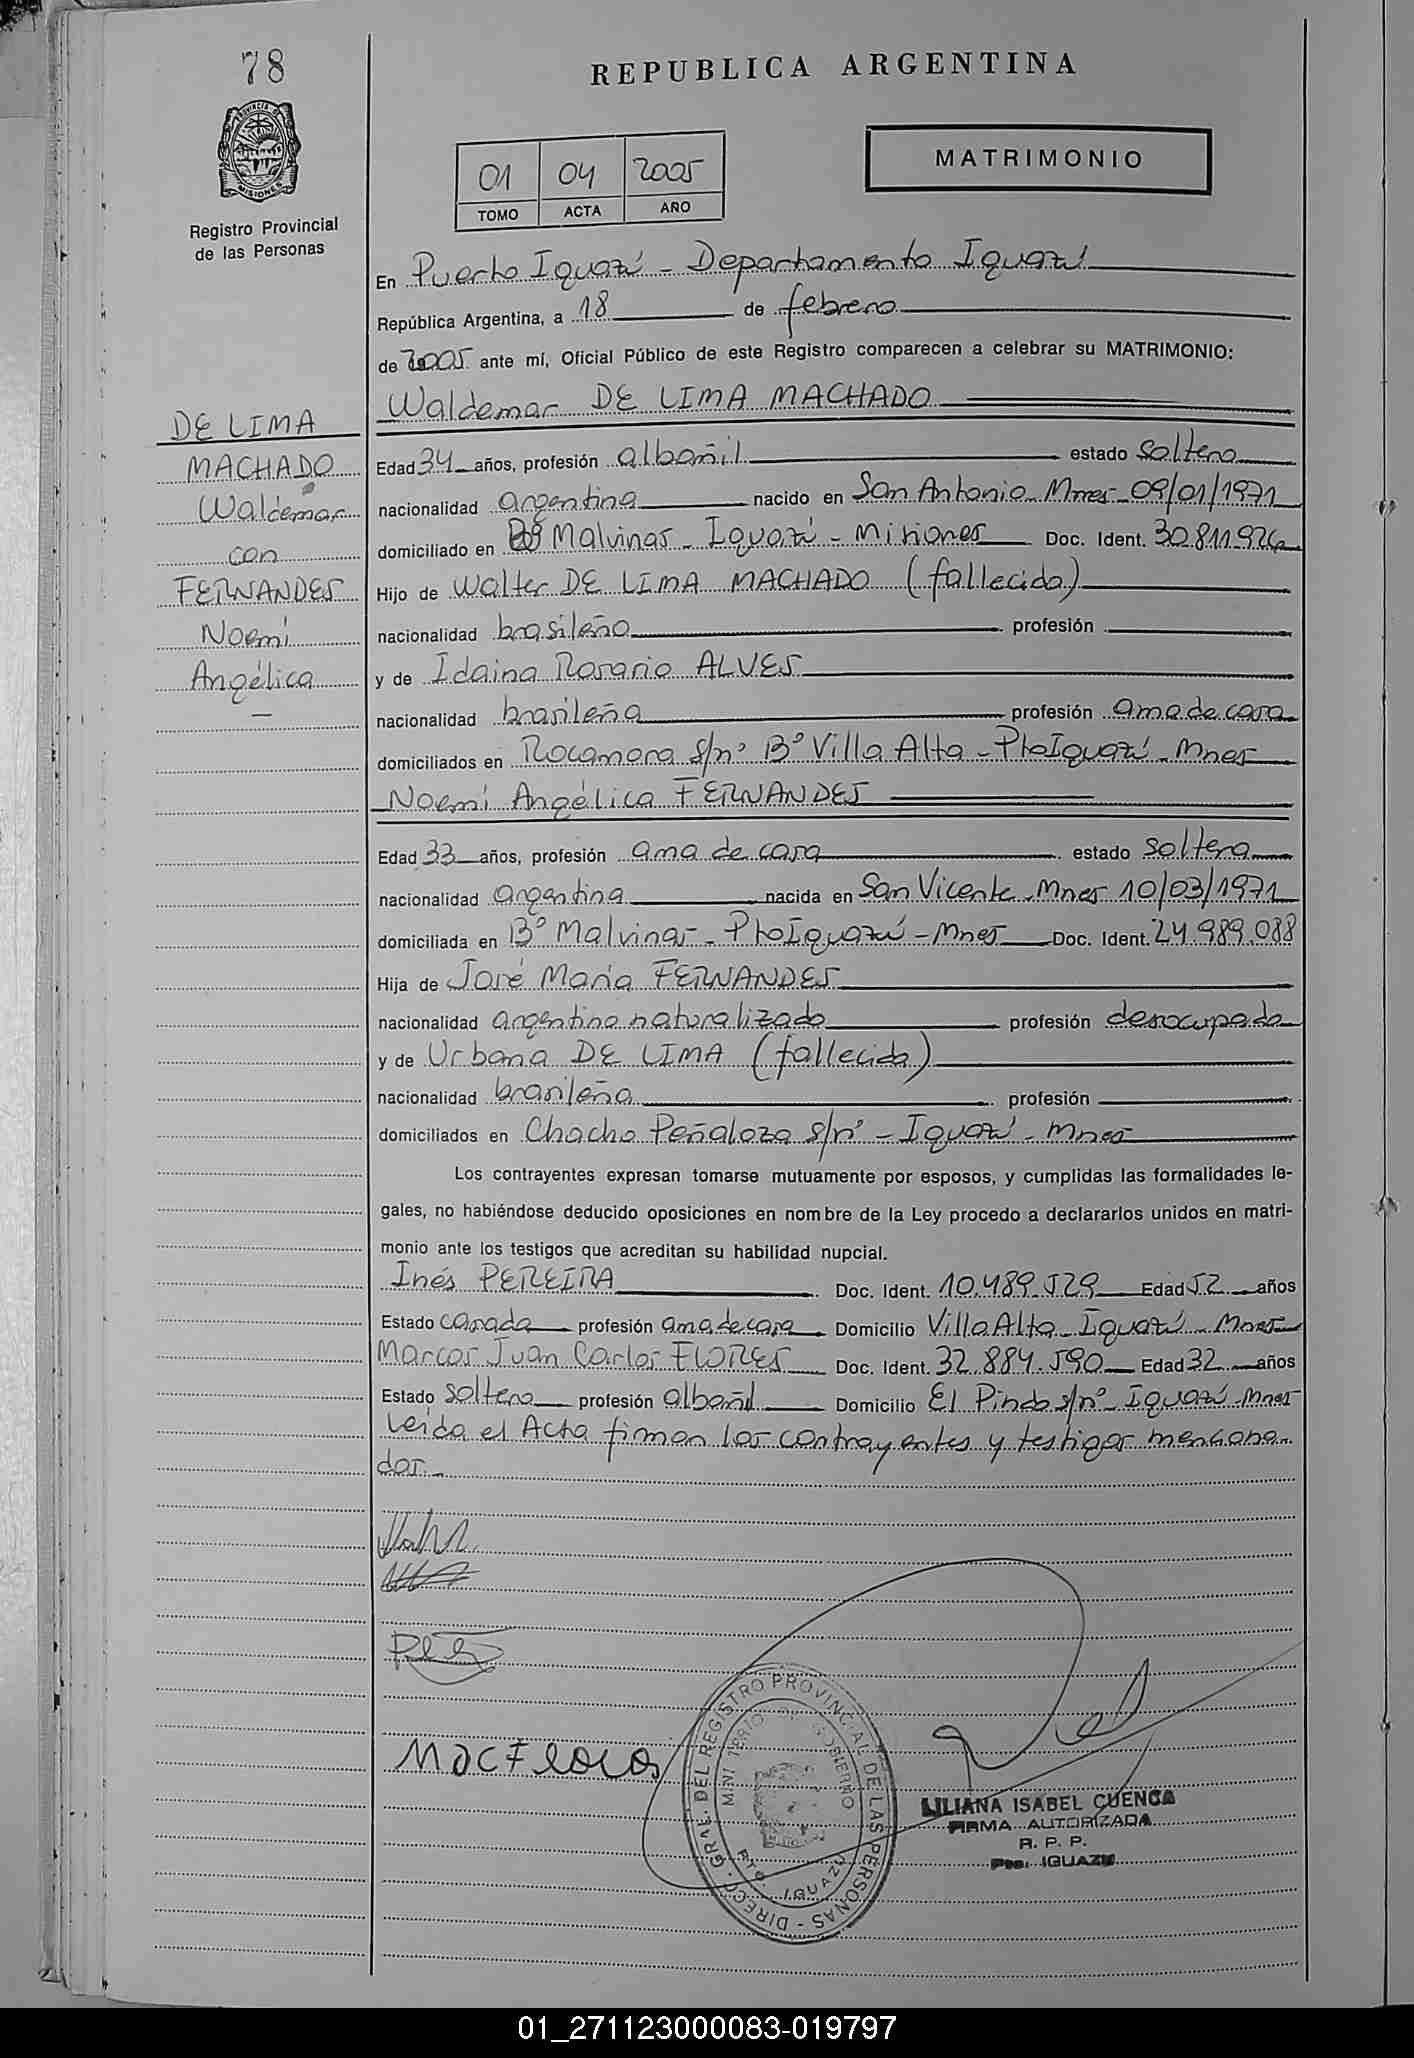 78
REPUBLICA ARGENTINA
PROVINCIA D
MISIONES
Registro Provincial
de las Personas
01 04 2005
TOMO ACTA AÑO
MATRIMONIO
En Puerto Iguazú - Departamento Iguazú
República Argentina, a 18 de febrero
de 2005 ante mí, Oficial Público de este Registro comparecen a celebrar su MATRIMONIO:
Waldemar DE LIMA MACHADO
DE LIMA
MACHADO
Waldemar
con
FERNANDES
Noemí
Angélica
Edad 34 años, profesión albañil estado soltero
nacionalidad argentina nacido en San Antonio Mnes - 09/01/1971
domiciliado en Bº Malvinas - Iguazú - Misiones Doc. Ident. 30.811.926
Hijo de Walter DE LIMA MACHADO (fallecido)
nacionalidad brasileño profesión
y de Idaina Rosario ALVES
nacionalidad brasileña profesión ama de casa
domiciliados en Rocamora s/nº Bº Villa Alta - Pto Iguazú - Mnes
Noemí Angélica FERNANDES
Edad 33 años, profesión ama de casa estado soltera
nacionalidad argentina nacida en San Vicente - Mnes 10/03/1971
domiciliada en Bº Malvinas - Pto Iguazú - Mnes Doc. Ident. 24.989.088
Hija de José María FERNANDES
nacionalidad argentino naturalizado profesión desocupado
y de Urbana DE LIMA (fallecida)
nacionalidad brasileña profesión
domiciliados en Chacho Peñaloza s/nº - Iguazú - Mnes
Los contrayentes expresan tomarse mutuamente por esposos, y cumplidas las formalidades le-
gales, no habiéndose deducido oposiciones en nombre de la Ley procedo a declararlos unidos en matri-
monio ante los testigos que acreditan su habilidad nupcial.
Inés PEREIRA Doc. Ident. 10.489.529 Edad 52 años
Estado casada profesión ama de casa Domicilio Villa Alta - Iguazú - Mnes
Marcos Juan Carlos FLORES Doc. Ident. 32.884.590 Edad 32 años
Estado soltero profesión albañil Domicilio El Pindo s/nº - Iguazú - Mnes
Leída el Acta firman los contrayentes y testigos menciona-
dos.-
DIRECC. GRAL. DEL REGISTRO PROVINCIAL DE LAS PERSONAS
MINISTERIO DE GOBIERNO
PTO. IGUAZU
LILIANA ISABEL CUENCA
FIRMA AUTORIZADA
R. P. P.
Pto. IGUAZU
01_271123000083-019797